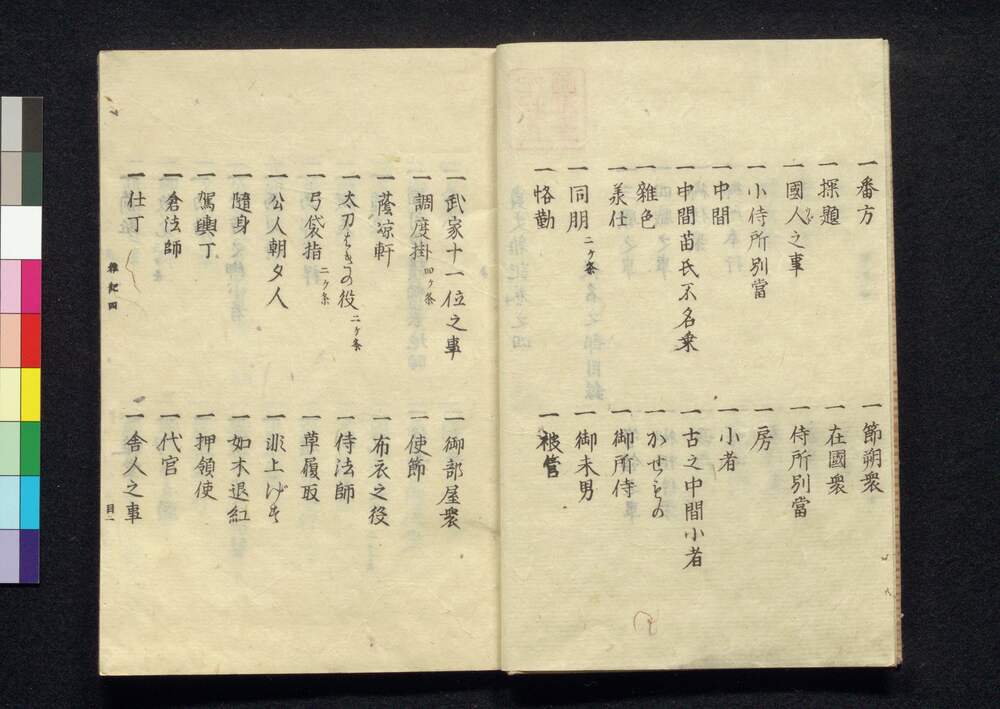 一番方
一探題
一國人之事
一小侍所別當
一中間
一中間苗氏不名乗
一雜色
一美仕
一同朋 二ヶ条
一恪勤
一節朔衆
一在國衆
一侍所別當
一房
一小者
一古之中間小者
一かせもの
一御所侍
一御末男
一被管
一武家十一位之事
一調度掛 四ヶ条
一蔭凉軒
一太刀はきの役 二ヶ条
一弓袋指 二ヶ条
一公人朝夕人
一隨身
一駕輿丁
一倉法師
一仕丁
一御部屋衆
一使節
一布衣之役
一侍法師
一草履取
一水上げす
一如木退紅
一押領使
一代官
一舎人之事
雜記四
目二